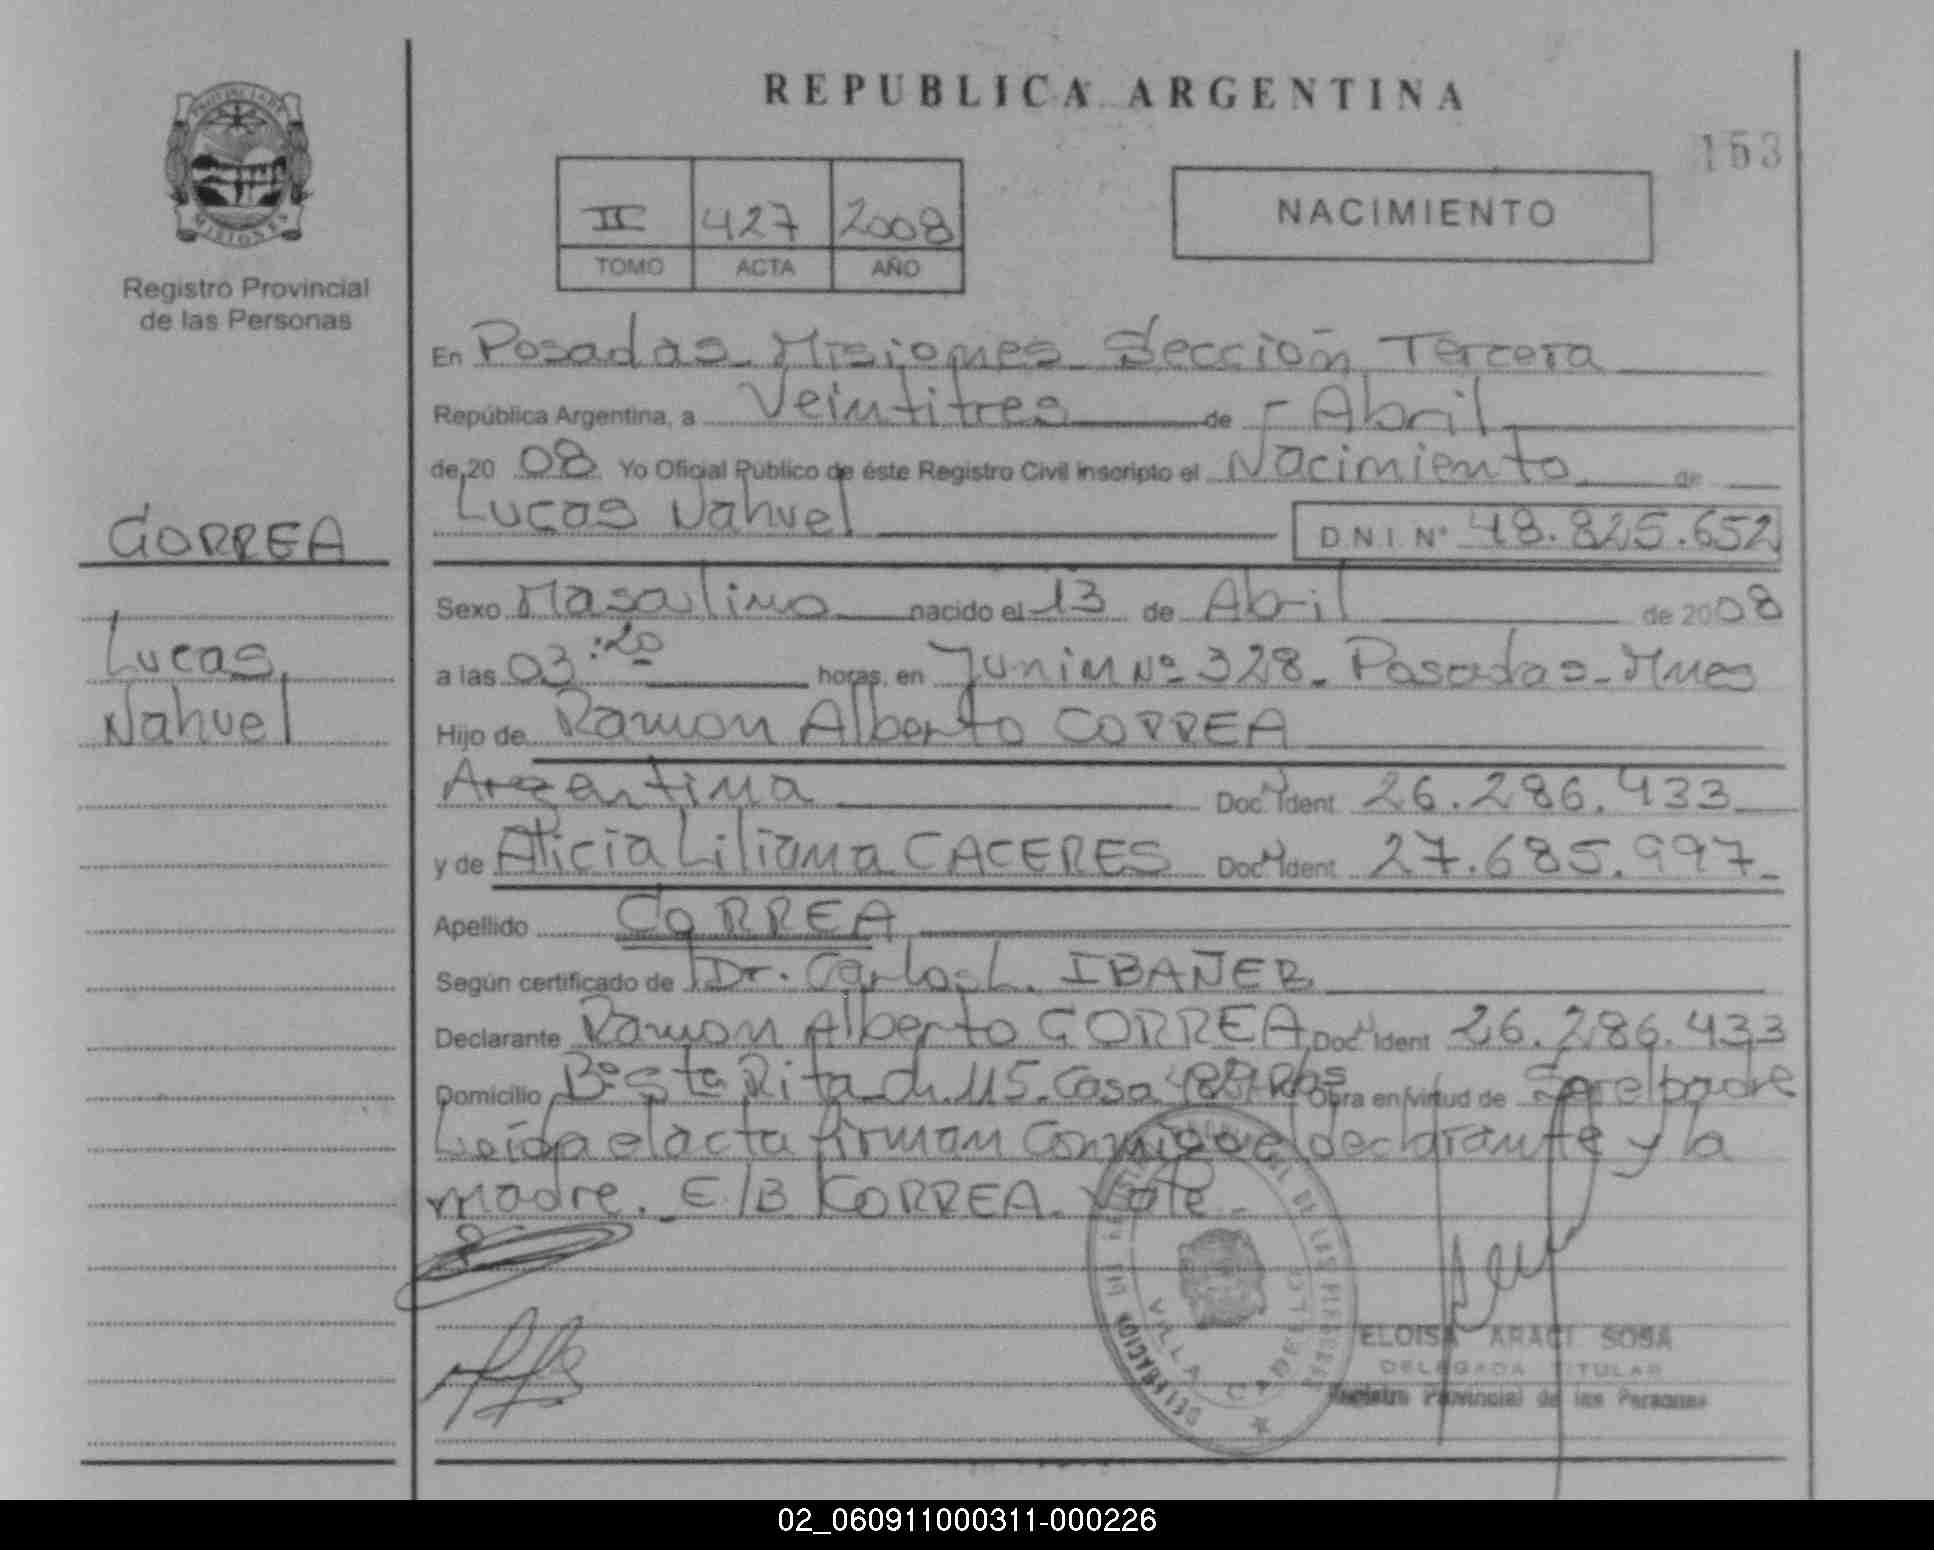 REPUBLICA ARGENTINA
153
PROVINCIA DE
MISIONES
Registro Provincial
de las Personas
II 427 2008
TOMO ACTA AÑO
NACIMIENTO
En Posadas - Misiones - Sección Tercera
República Argentina, a Veintitres de - Abril
de 20 08 Yo Oficial Público de éste Registro Civil inscripto el Nacimiento de
Lucas Nahuel
D.N.I. Nº 48.825.652
CORREA
Lucas
Nahuel
Sexo Masculino nacido el 13 de Abril de 2008
a las 03:20 horas, en Junin Nº 328 - Posadas - Mnes
Hijo de Ramon Alberto CORREA
Argentina Doc. Ident. 26.286.433
y de Alicia Liliana CACERES Doc. Ident. 27.685.997.
Apellido CORREA
Según certificado de Dr. Carlos L. IBAÑEZ
Declarante Ramon Alberto CORREA Doc. Ident 26.286.433
Domicilio Bº Sta Rita ch. 115. Casa Obra en virtud de Ser el padre
Leída el acta firman Conmigo el declarante y la
madre. E/B CORREA. Vale.
DELEGACION DEL REGISTRO PROVINCIAL DE LAS PERSONAS
VILLA CABELLO
ELOISA ARACI SOSA
DELEGADA TITULAR
Registro Provincial de las Personas
02_060911000311-000226